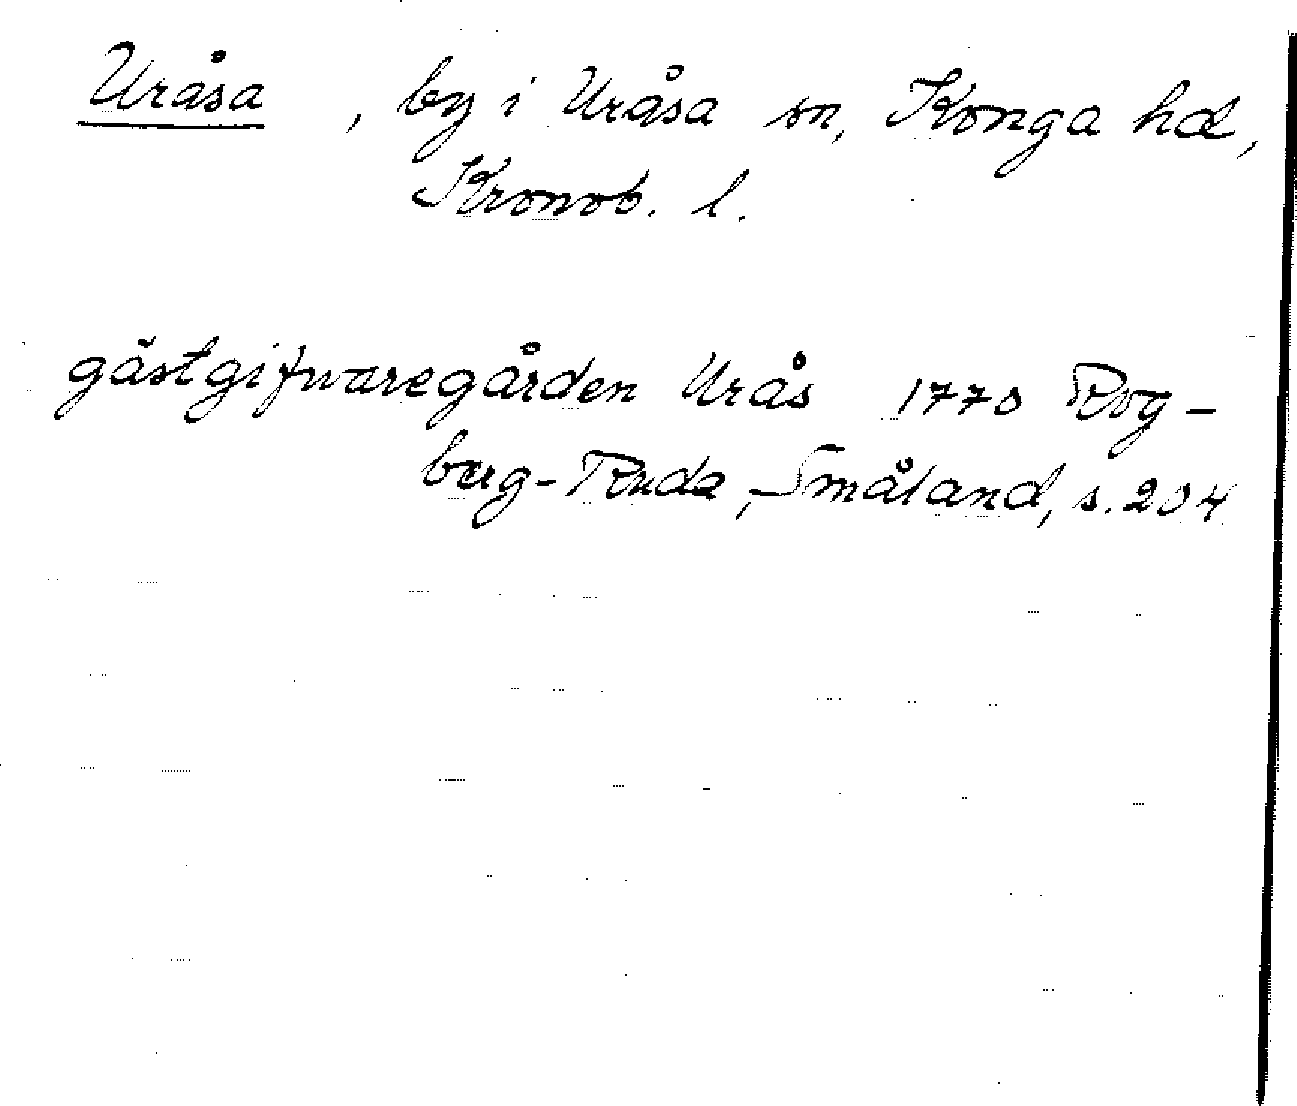 Uråsa, by i Uråsa sn, Konga hd,
Kronob. l.
gästgifwaregården Urås 1770 Rog-
berg-Ruda, Småland, s. 204